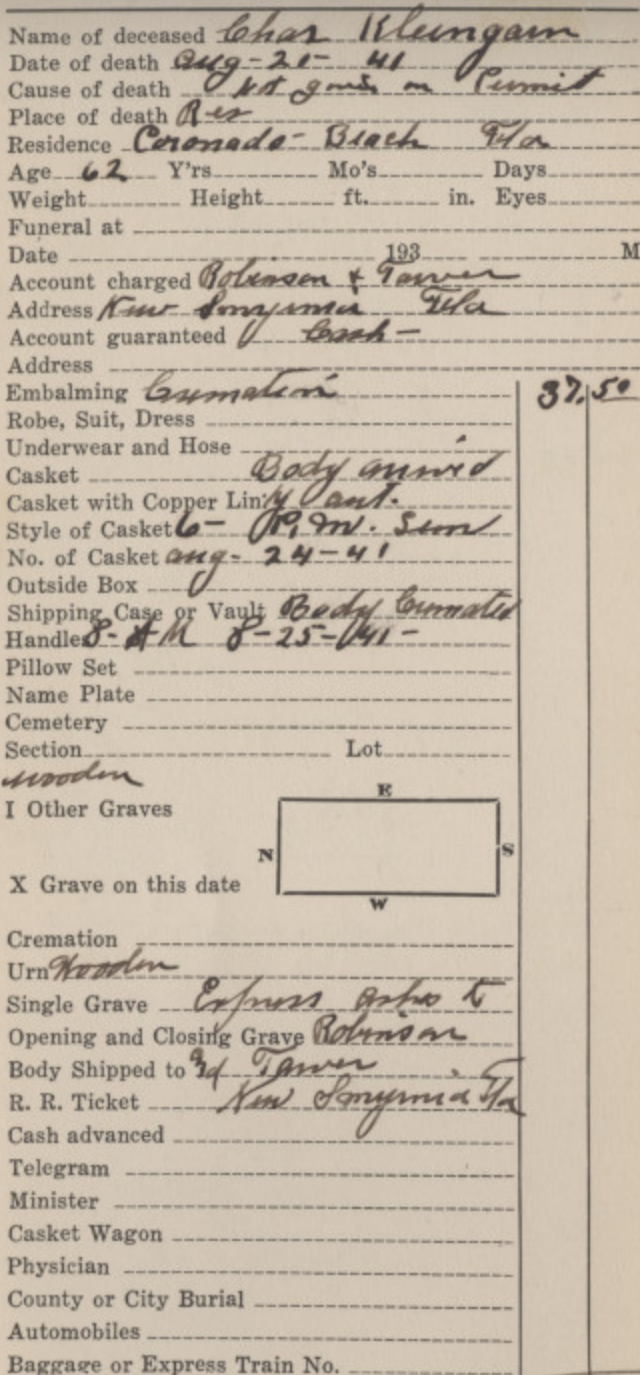 Name of deceased Chas Kleingarn
Date of death Aug-21-41
Cause of death Not given on Permit
Place of death Res
Residence Coronado-Beach Fla
Age 62 Y'rs Mo's Days
Weight Height ft. in. Eyes
Funeral at
Date 193 M
Account charged Robinson &
Address New Smyrna Fla
Account guaranteed Cash-
Address
Embalming Cremation 37.50
Robe, Suit, Dress
Underwear and Hose
Casket Body arrived
Casket with Copper Lin'g aut.
Style of Casket 6- P.M. Sun
No. of Casket Aug- 24-41
Outside Box
Shipping Case or Vault Body Cremated
Handles 8-AM 8-25-41-
Pillow Set
Name Plate
Cemetery
Section Lot
wooden
E
I Other Graves
N S
X Grave on this date
W
Cremation
Urn Wooden
Single Grave Express ashes to
Opening and Closing Grave Robinson
Body Shipped to
R. R. Ticket New Smyrna Fla
Cash advanced
Telegram
Minister
Casket Wagon
Physician
County or City Burial
Automobiles
Baggage or Express Train No.